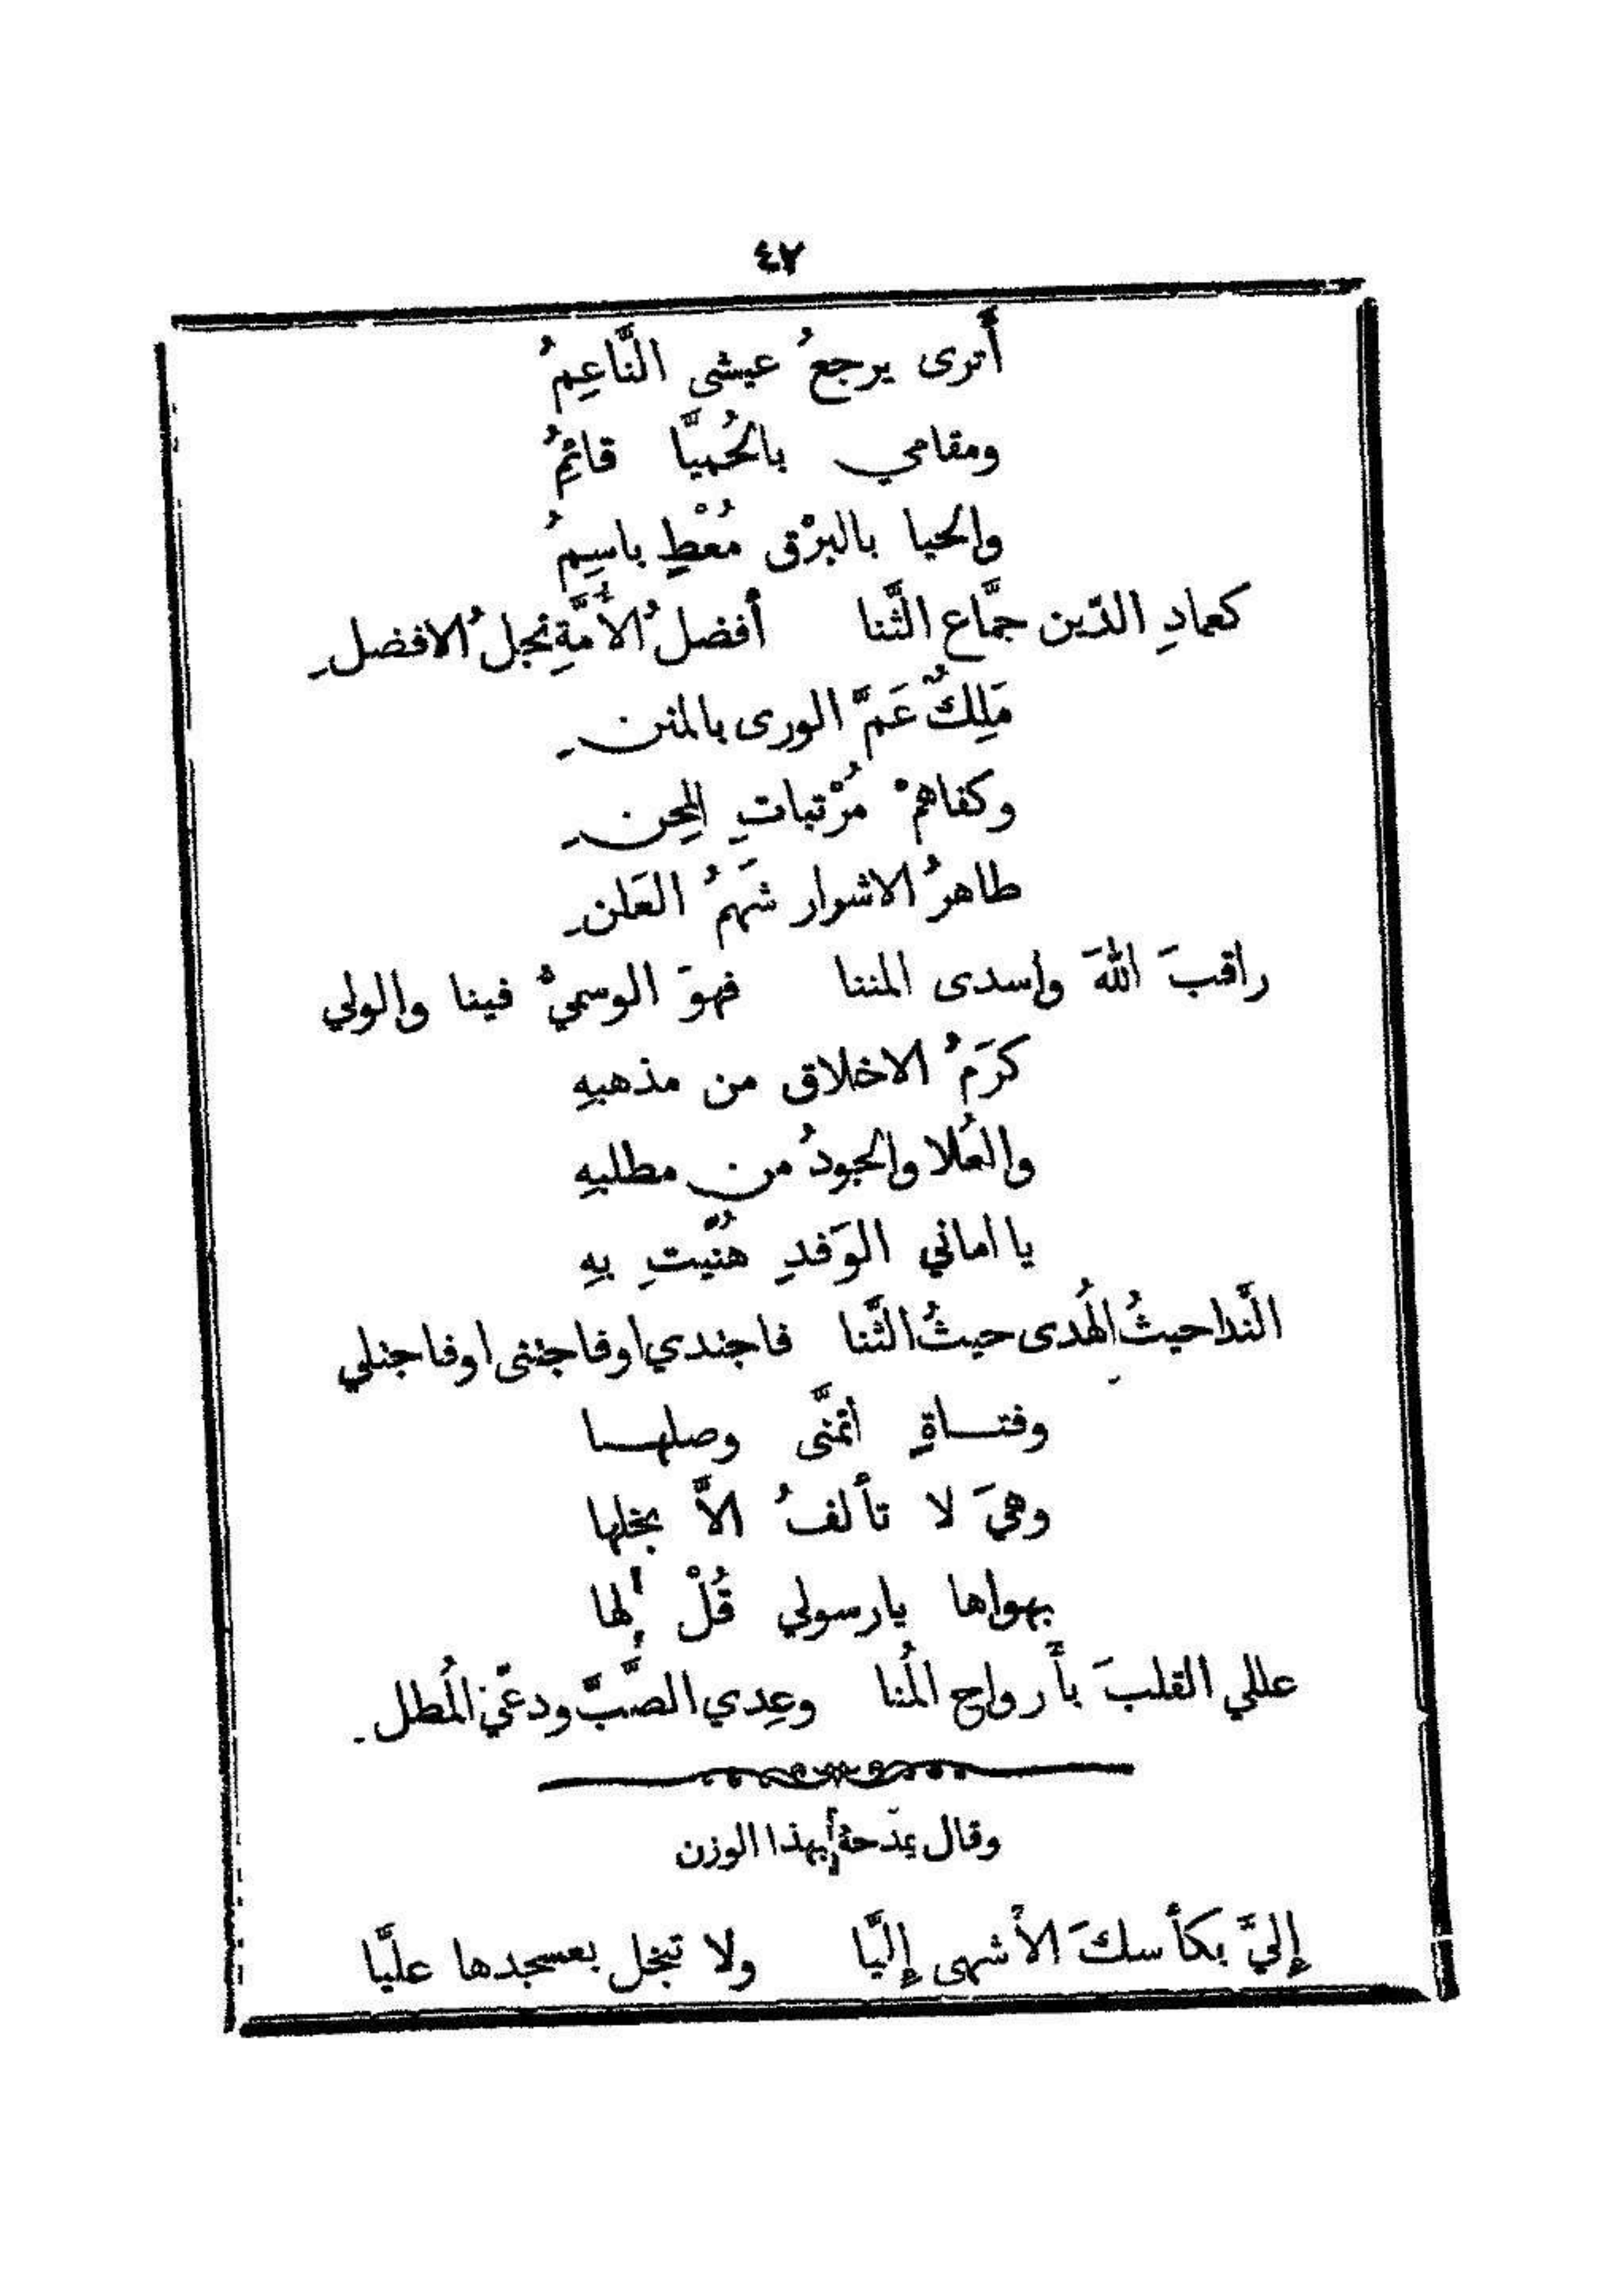 ٤٧
أَترى يرجعُ عيشى النَّاعِمُ
ومقامي بالحُميَّا قائمُ
والحيا بالبرْق مُعْطٍ باسِمُ
كعمادِ الدّين جمَّاع الثَّنا أفضلُ الأُمَّةِ نجلُ الافضلِ
مَلِكٌ عَمَّ الورى بالمننِ
وكفاهمْ مُرْتباتِ المِحنِ
طاهرُ الاشرار شَهمُ العَلنِ
راقبَ اللهَ واسدى المننا فهوَ الوسميُّ فينا والولي
كرَمُ الاخلاق من مذهبهِ
والعُلا والجودُ من مطلبهِ
يا اماني الوَفدِ هنّيتِ بهِ
النَّدا حيثُ الهُدى حيثُ الثَّنا فاجندي اوفاجتنى اوفاجتلي
وفتاةٍ اتمنَّى وصلها
وهيَ لا تألفُ الاَّ بخلها
بهواها يارسولي قُلْ لها
عللي القلبَ بأَرواح المُنا وعِدي الصَّبَّ ودعّي المُطلِ
وقال يمدحهُ بهذا الوزن
إليَّ بكأسكَ الأشهى إليَّا ولا تبخل بعسجدها عليَّا